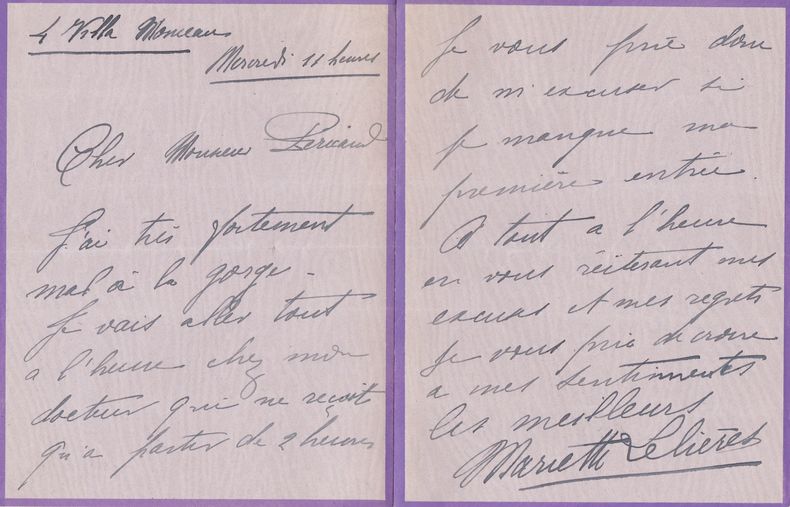 4 Villa Monceau
Mercredi 11 heures
Cher Monsieur Péricaud
J'ai très fortement
mal à la gorge -
Je vais aller tout
à l'heure chez mon
docteur qui ne reçoit
qu'a partir de 2 heures
Je vous prie donc
de m'excuser si
je manque ma
première entrée.
A tout a l'heure
en vous réiterant mes
excuses et mes regrets
Je vous prie de croire
a mes sentiments
les meilleurs